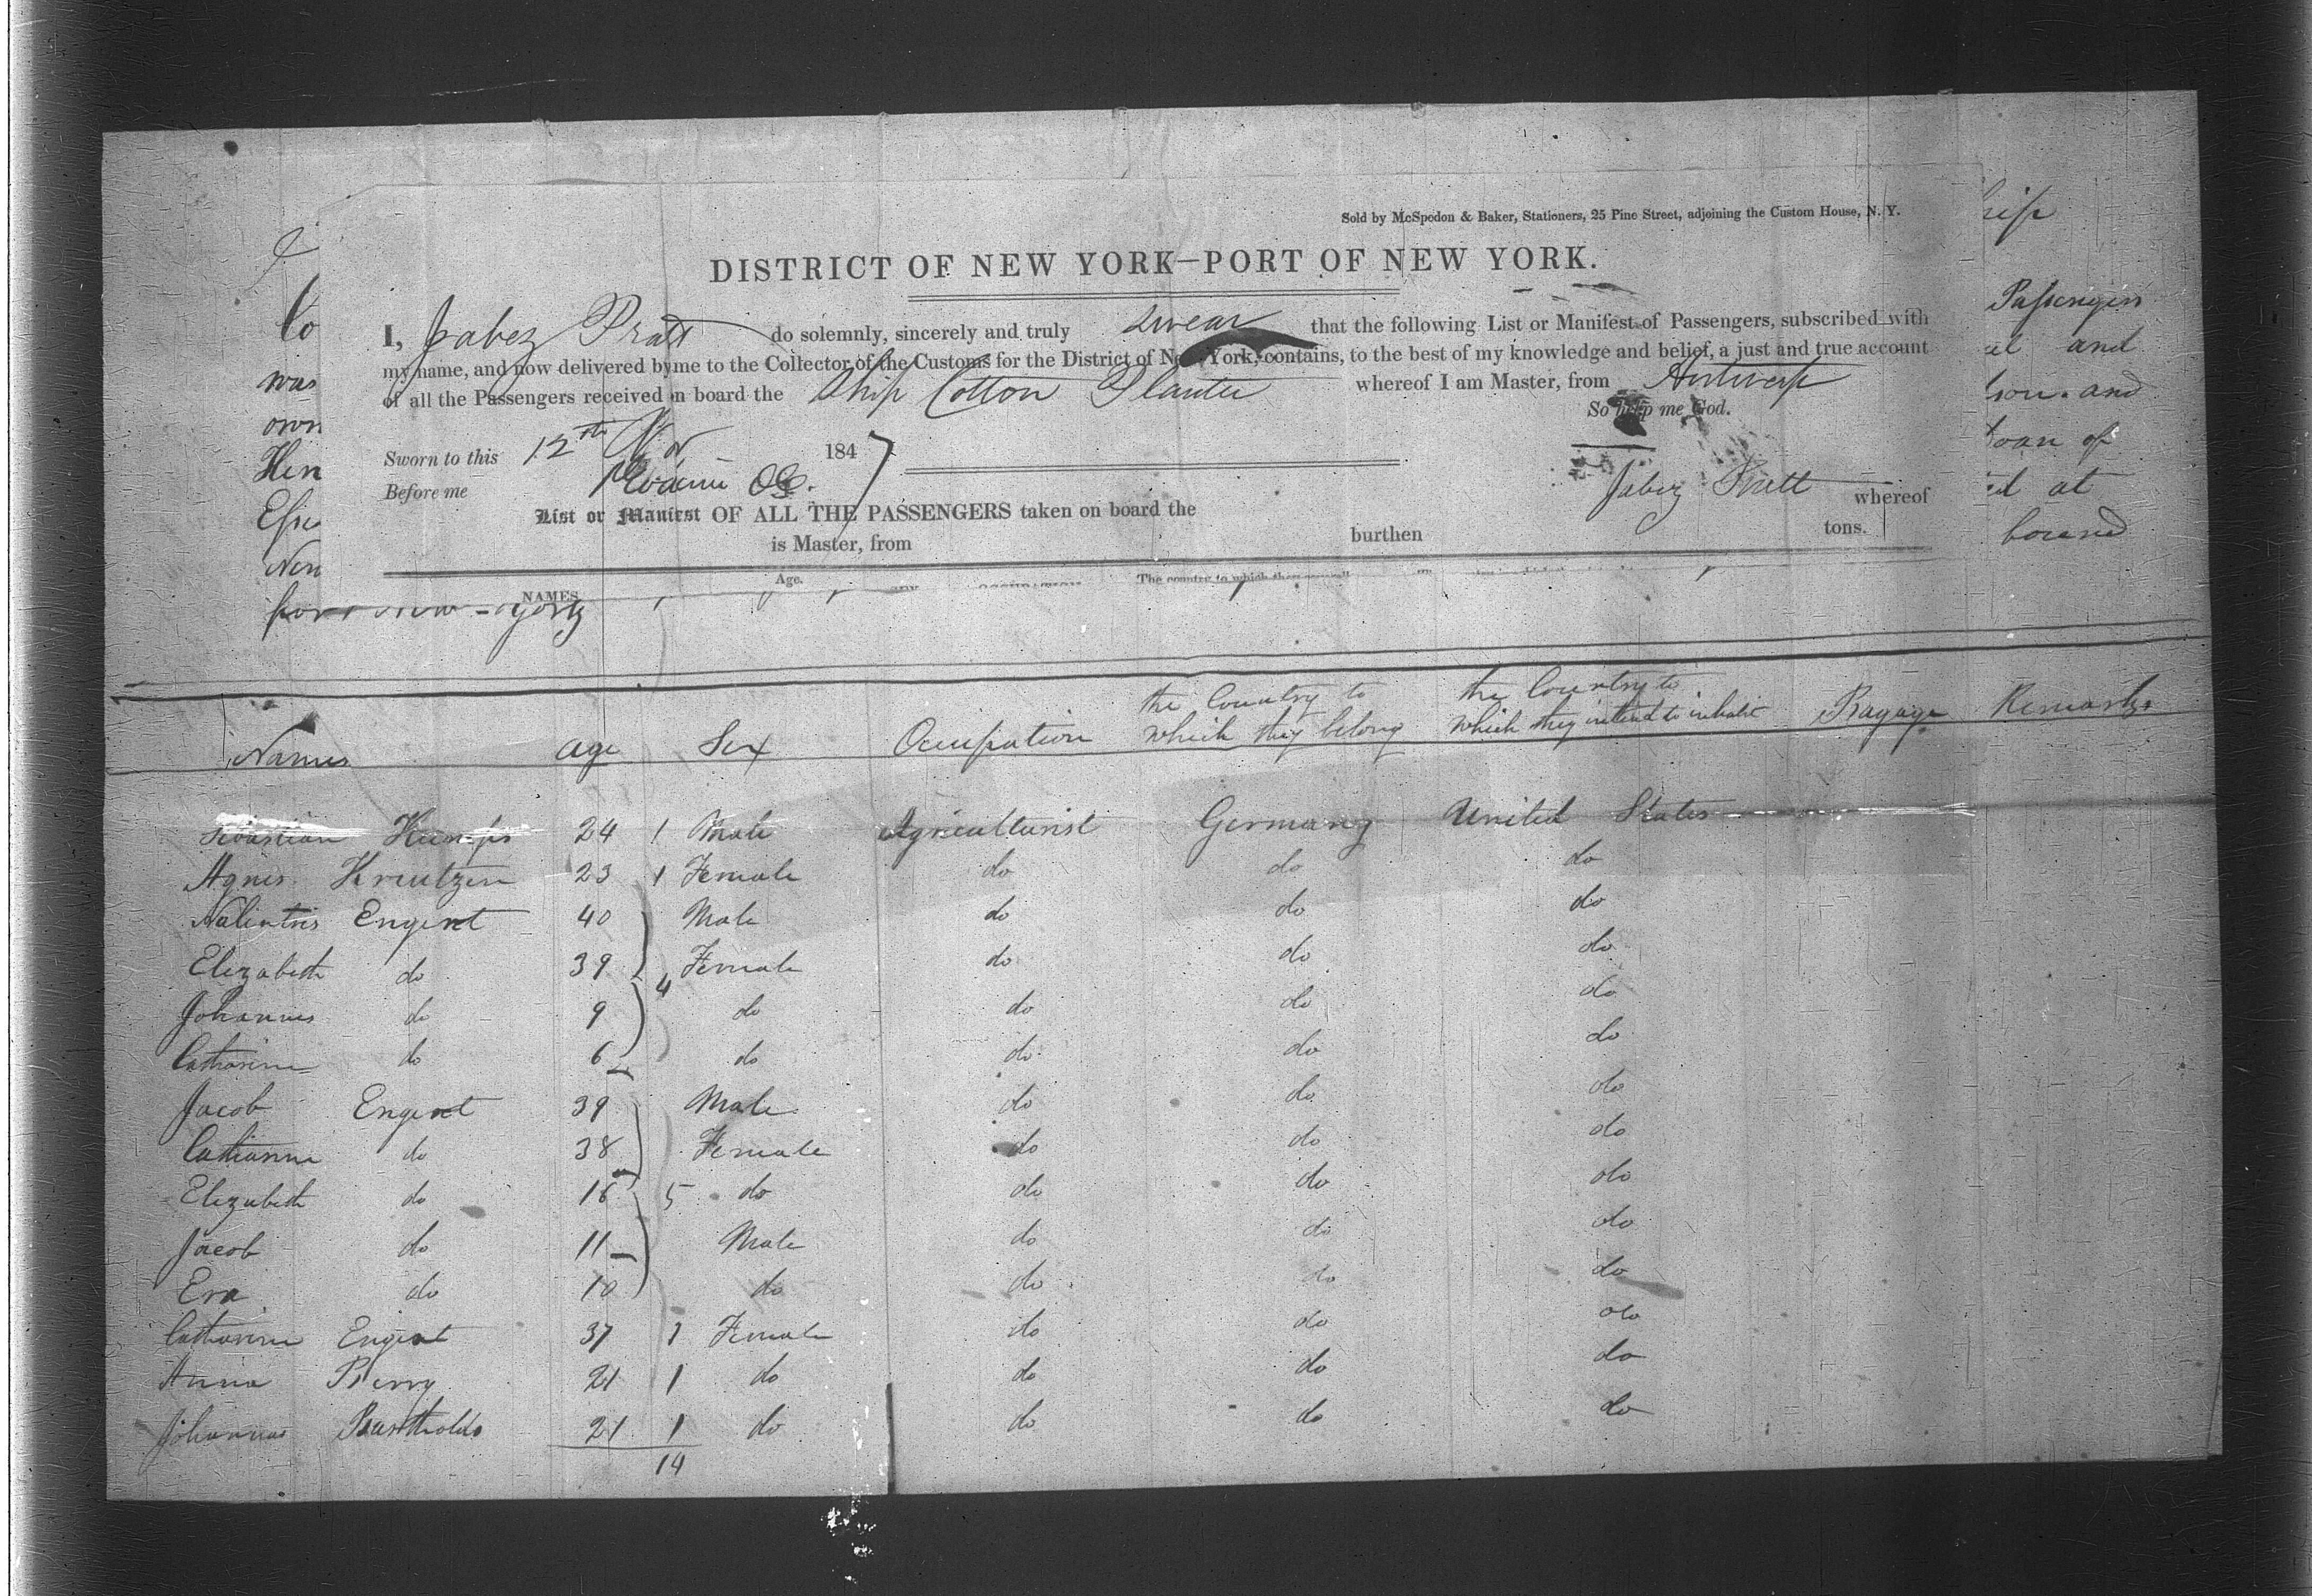 Sold by McSpedon & Baker, Stationers, 25 Pine Street, adjoining the Custom House, N. Y.
DISTRICT OF NEW YORK—PORT OF NEW YORK.
I, Jabez Pratt do solemnly, sincerely and truly swear that the following List or Manifest of Passengers, subscribed with
my name, and now delivered by me to the Collector of the Customs for the District of New York, contains, to the best of my knowledge and belief, a just and true account
of all the Passengers received on board the Ship Cotton Planter whereof I am Master, from Antwerp
So help me God.
Sworn to this 12th Nov 1847
Before me
Jabez Pratt
List or Manifest OF ALL THE PASSENGERS taken on board the whereof
is Master, from burthen tons.
NAMES Age. OCCUPATION The country to which they severally
was
own
Passengers
and
and
of
at
bound
for New-York
Names age Sex Ocupation the Country to which they belong the Country to which they intend to inhabit Bagage Remarks
Sebastian Kumps 24 1 Male Agriculturist Germany United States
Agnes Kreutzen 23 1 Female do do do
Engert 40 Male do do do
Elizabeth do 39 Female do do do
4
Johannes do 9 do do do do
Catharine do 6 do do do do
Jacob Engert 39 Male do do do
do 38 Female do do do
Elizabeth do 16 5 do do do do
Jacob do 11 Male do do do
Eva do 10 do do do do
Catharine Engert 37 1 Female do do do
Anna Berry 21 1 do do do do
Johannes Bartholds 21 1 do do do do
14